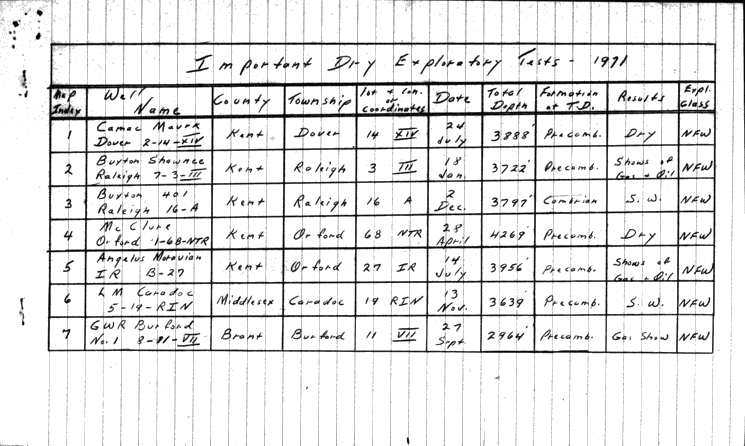 Important Dry Exploratory Tests - 1971
Map Index | Well Name | County | Township | lot + Con. or coordinates | Date | Total Depth | Formation at T.D. | Results | Expl. Class
1 | Camac Maurk Dover 2-14-XIV | Kent | Dover | 14 XIV | 24 July | 3888' | Precamb. | Dry | NFW
2 | Buxton Shawnee Raleigh 7-3-III | Kent | Raleigh | 3 III | 18 Jan. | 3722' | Precamb. | Shows of Gas + Oil | NFW
3 | Buxton 401 Raleigh 16-A | Kent | Raleigh | 16 A | 2 Dec. | 3797' | Cambrian | S.W. | NFW
4 | McClure Orford 1-68-NTR | Kent | Orford | 68 NTR | 28 April | 4269' | Precamb. | Dry | NFW
5 | Angelus Moravian IR B-27 | Kent | Orford | 27 IR | 14 July | 3956' | Precamb. | Shows of Gas + Oil | NFW
6 | LM Caradoc 5-19-RIN | Middlesex | Caradoc | 19 RIN | 13 Nov. | 3639' | Precamb. | S.W. | NFW
7 | GWR Burford No.1 8-11-VII | Brant | Burford | 11 VII | 27 Sept. | 2964' | Precamb. | Gas Show | NFW